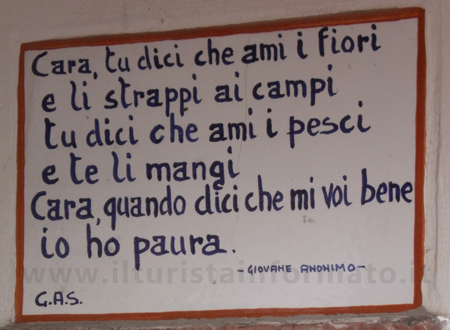 Cara, tu dici che ami i fiori
e li strappi ai campi
tu dici che ami i pesci
e te li mangi
Cara, quando dici che mi voi bene
io ho paura.
- GIOVANE ANONIMO -
www.ilturistainformato.it
G.A.S.